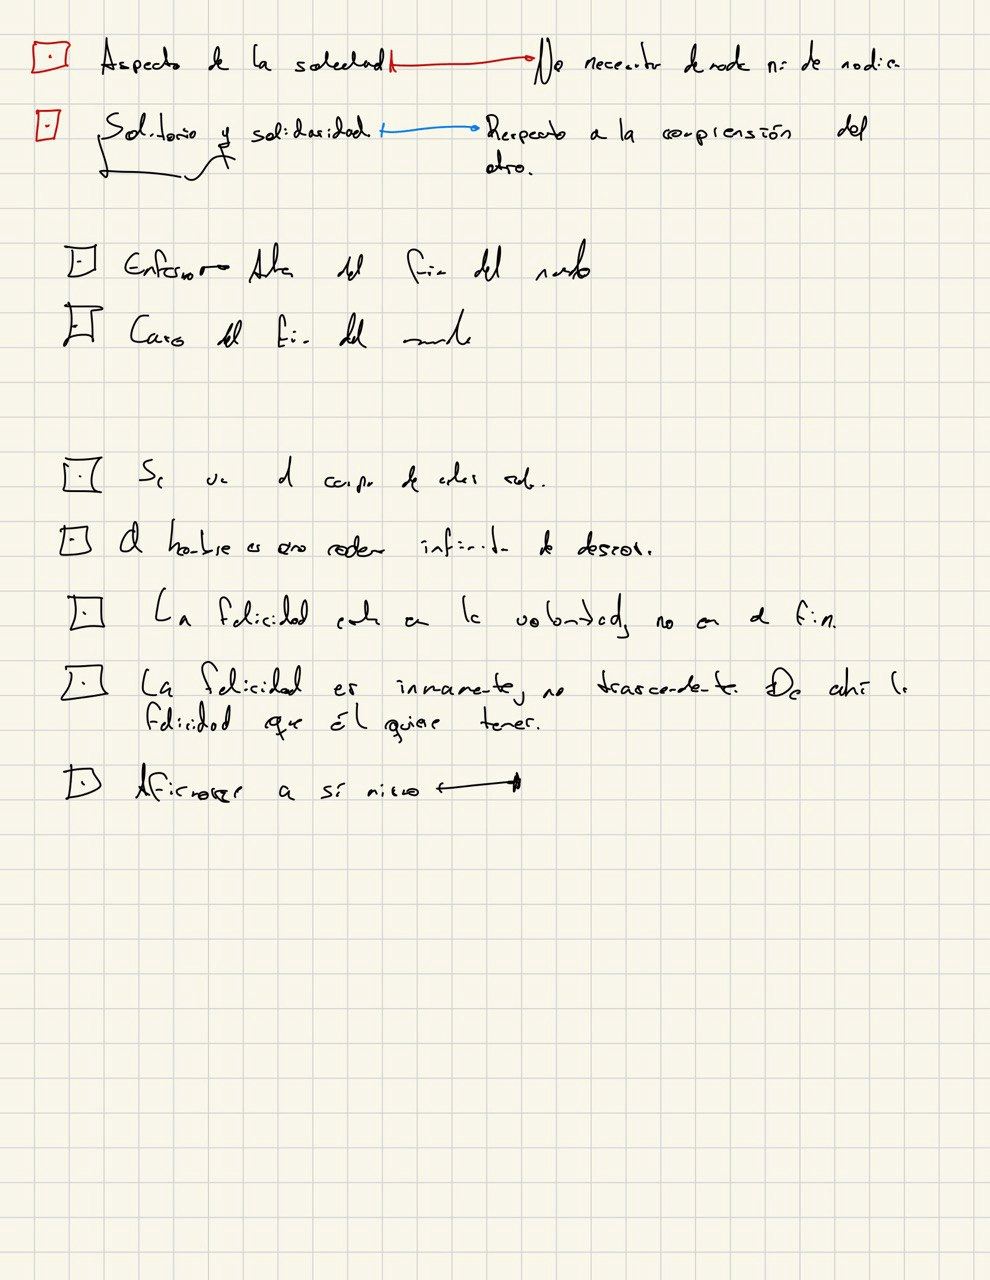 Aspecto de la soledad No necesitar de nada ni de nadie
Solitario y solidaridad Respecto a la comprensión del
otro.
Enfermo del fin del mundo
Caso del fin del mundo
Se el de
El hombre es una cadena infinita de deseos.
La felicidad está en la voluntad, no en el fin.
La felicidad es inmanente, no trascendente. De ahí la
felicidad que él quiere tener.
Afirmarse a sí mismo